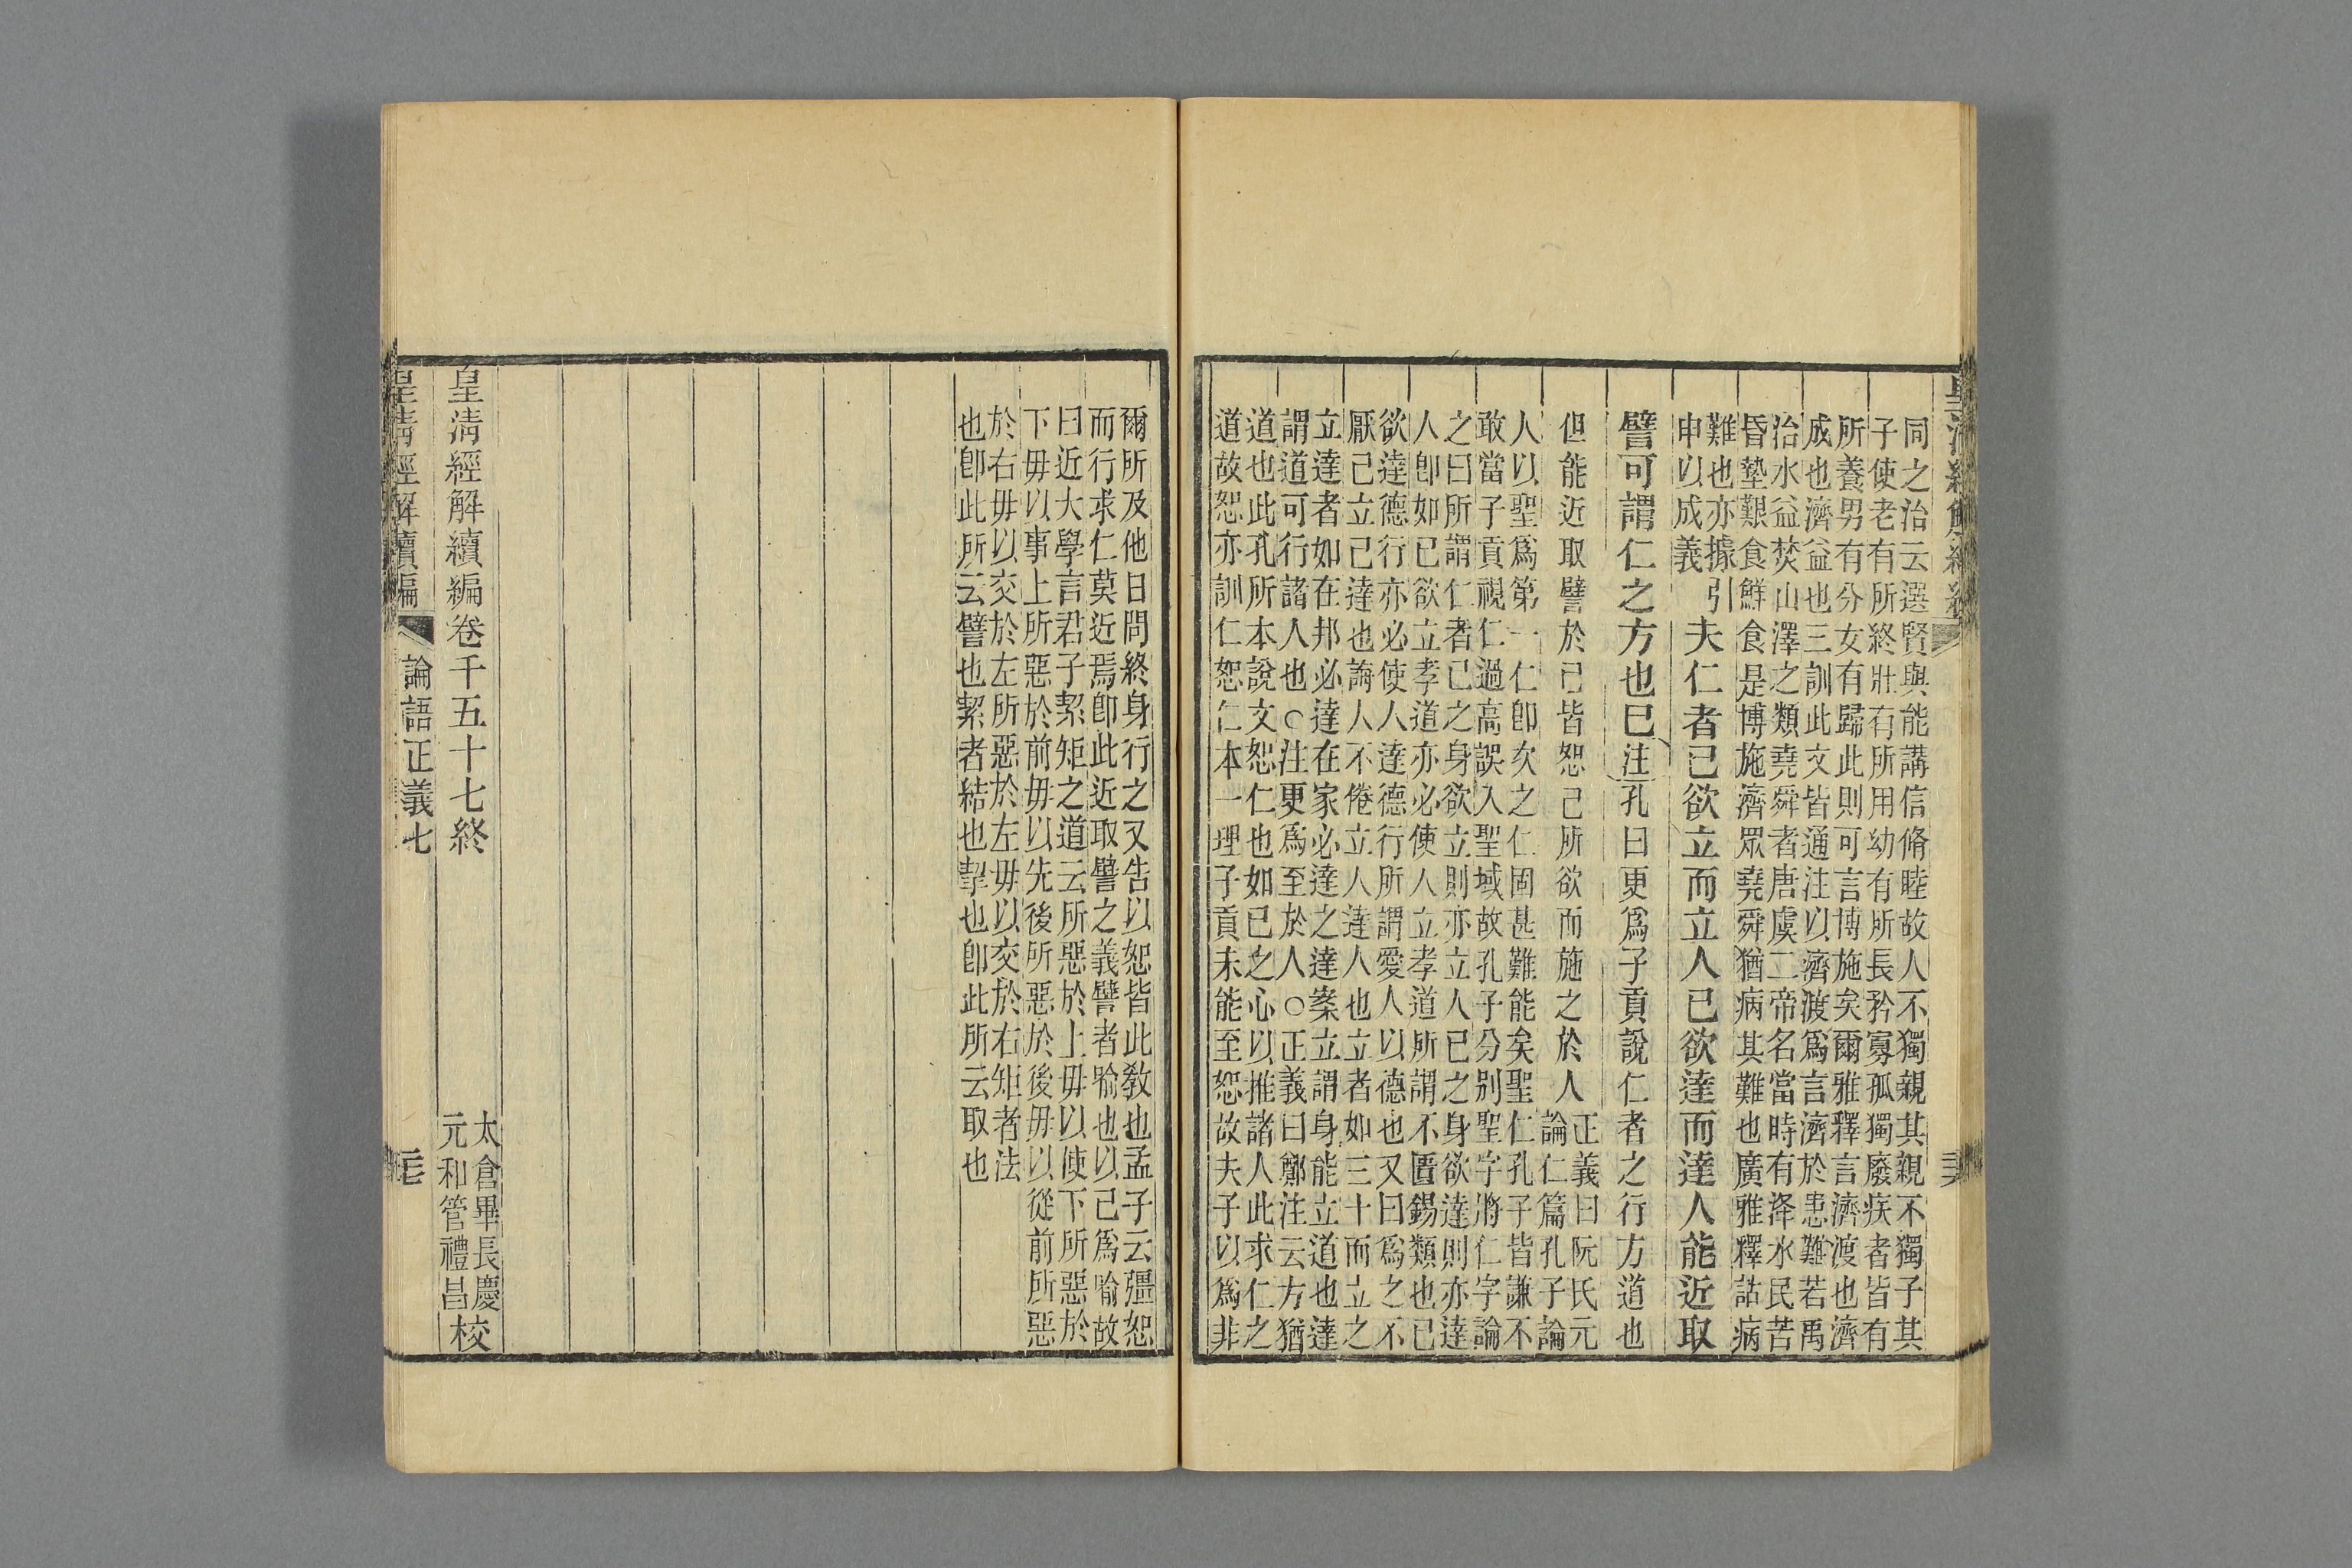 同之治云選賢與能講信脩睦故人不獨親其親不獨子其
子使老有所終壯有所用幼有所長矜寡孤獨廢疾者皆有
所養男有分女有歸此則可言博施矣爾雅釋言濟渡也濟
成也濟益也三訓此文皆通注以濟渡爲言濟於患難若禹
治水益焚山澤之類堯舜者唐虞二帝名當時有洚水民苦
昏墊艱食鮮食是博施濟眾堯舜猶病其難也廣雅釋詁病
難也亦據引
申以成義
夫仁者己欲立而立人己欲達而達人能近取
譬可謂仁之方也已注孔曰更爲子貢說仁者之行方道也
但能近取譬於己皆恕己所欲而施之於人
正義曰阮氏元
論仁篇孔子論
人以聖爲第一仁卽次之仁固甚難能矣聖仁孔子皆謙不
敢當子貢視仁過高誤入聖域故孔子分别聖字將仁字論
之曰所謂仁者己之身欲立則亦立人己之身欲達則亦達
人卽如己欲立孝道亦必使人立孝道所謂不匱錫類也己
欲達德行亦必使人達德行所謂愛人以德也又曰爲之不
厭己立己達也誨人不倦立人達人也立者如三十而立之
立達者如在邦必達在家必達之達案立謂身能立道也達
謂道可行諸人也○注更爲至於人○正義曰鄭注云方猶
道也此孔所本說文恕仁也如己之心以推諸人此求仁之
道故恕亦訓仁恕仁本一理子貢未能至恕故夫子以爲非
爾所及他日問終身行之又告以恕皆此敎也孟子云彊恕
而行求仁莫近焉卽此近取譬之義譬者喻也以己爲喻故
曰近大學言君子絜矩之道云所惡於上毋以使下所惡於
下毋以事上所惡於前毋以先後所惡於後毋以從前所惡
於右毋以交於左所惡於左毋以交於右矩者法
也卽此所云譬也絜者結也挈也卽此所云取也
皇清經解續編卷千五十七終
太倉畢長慶
元和管禮昌校
皇清經解續編 論語正義七